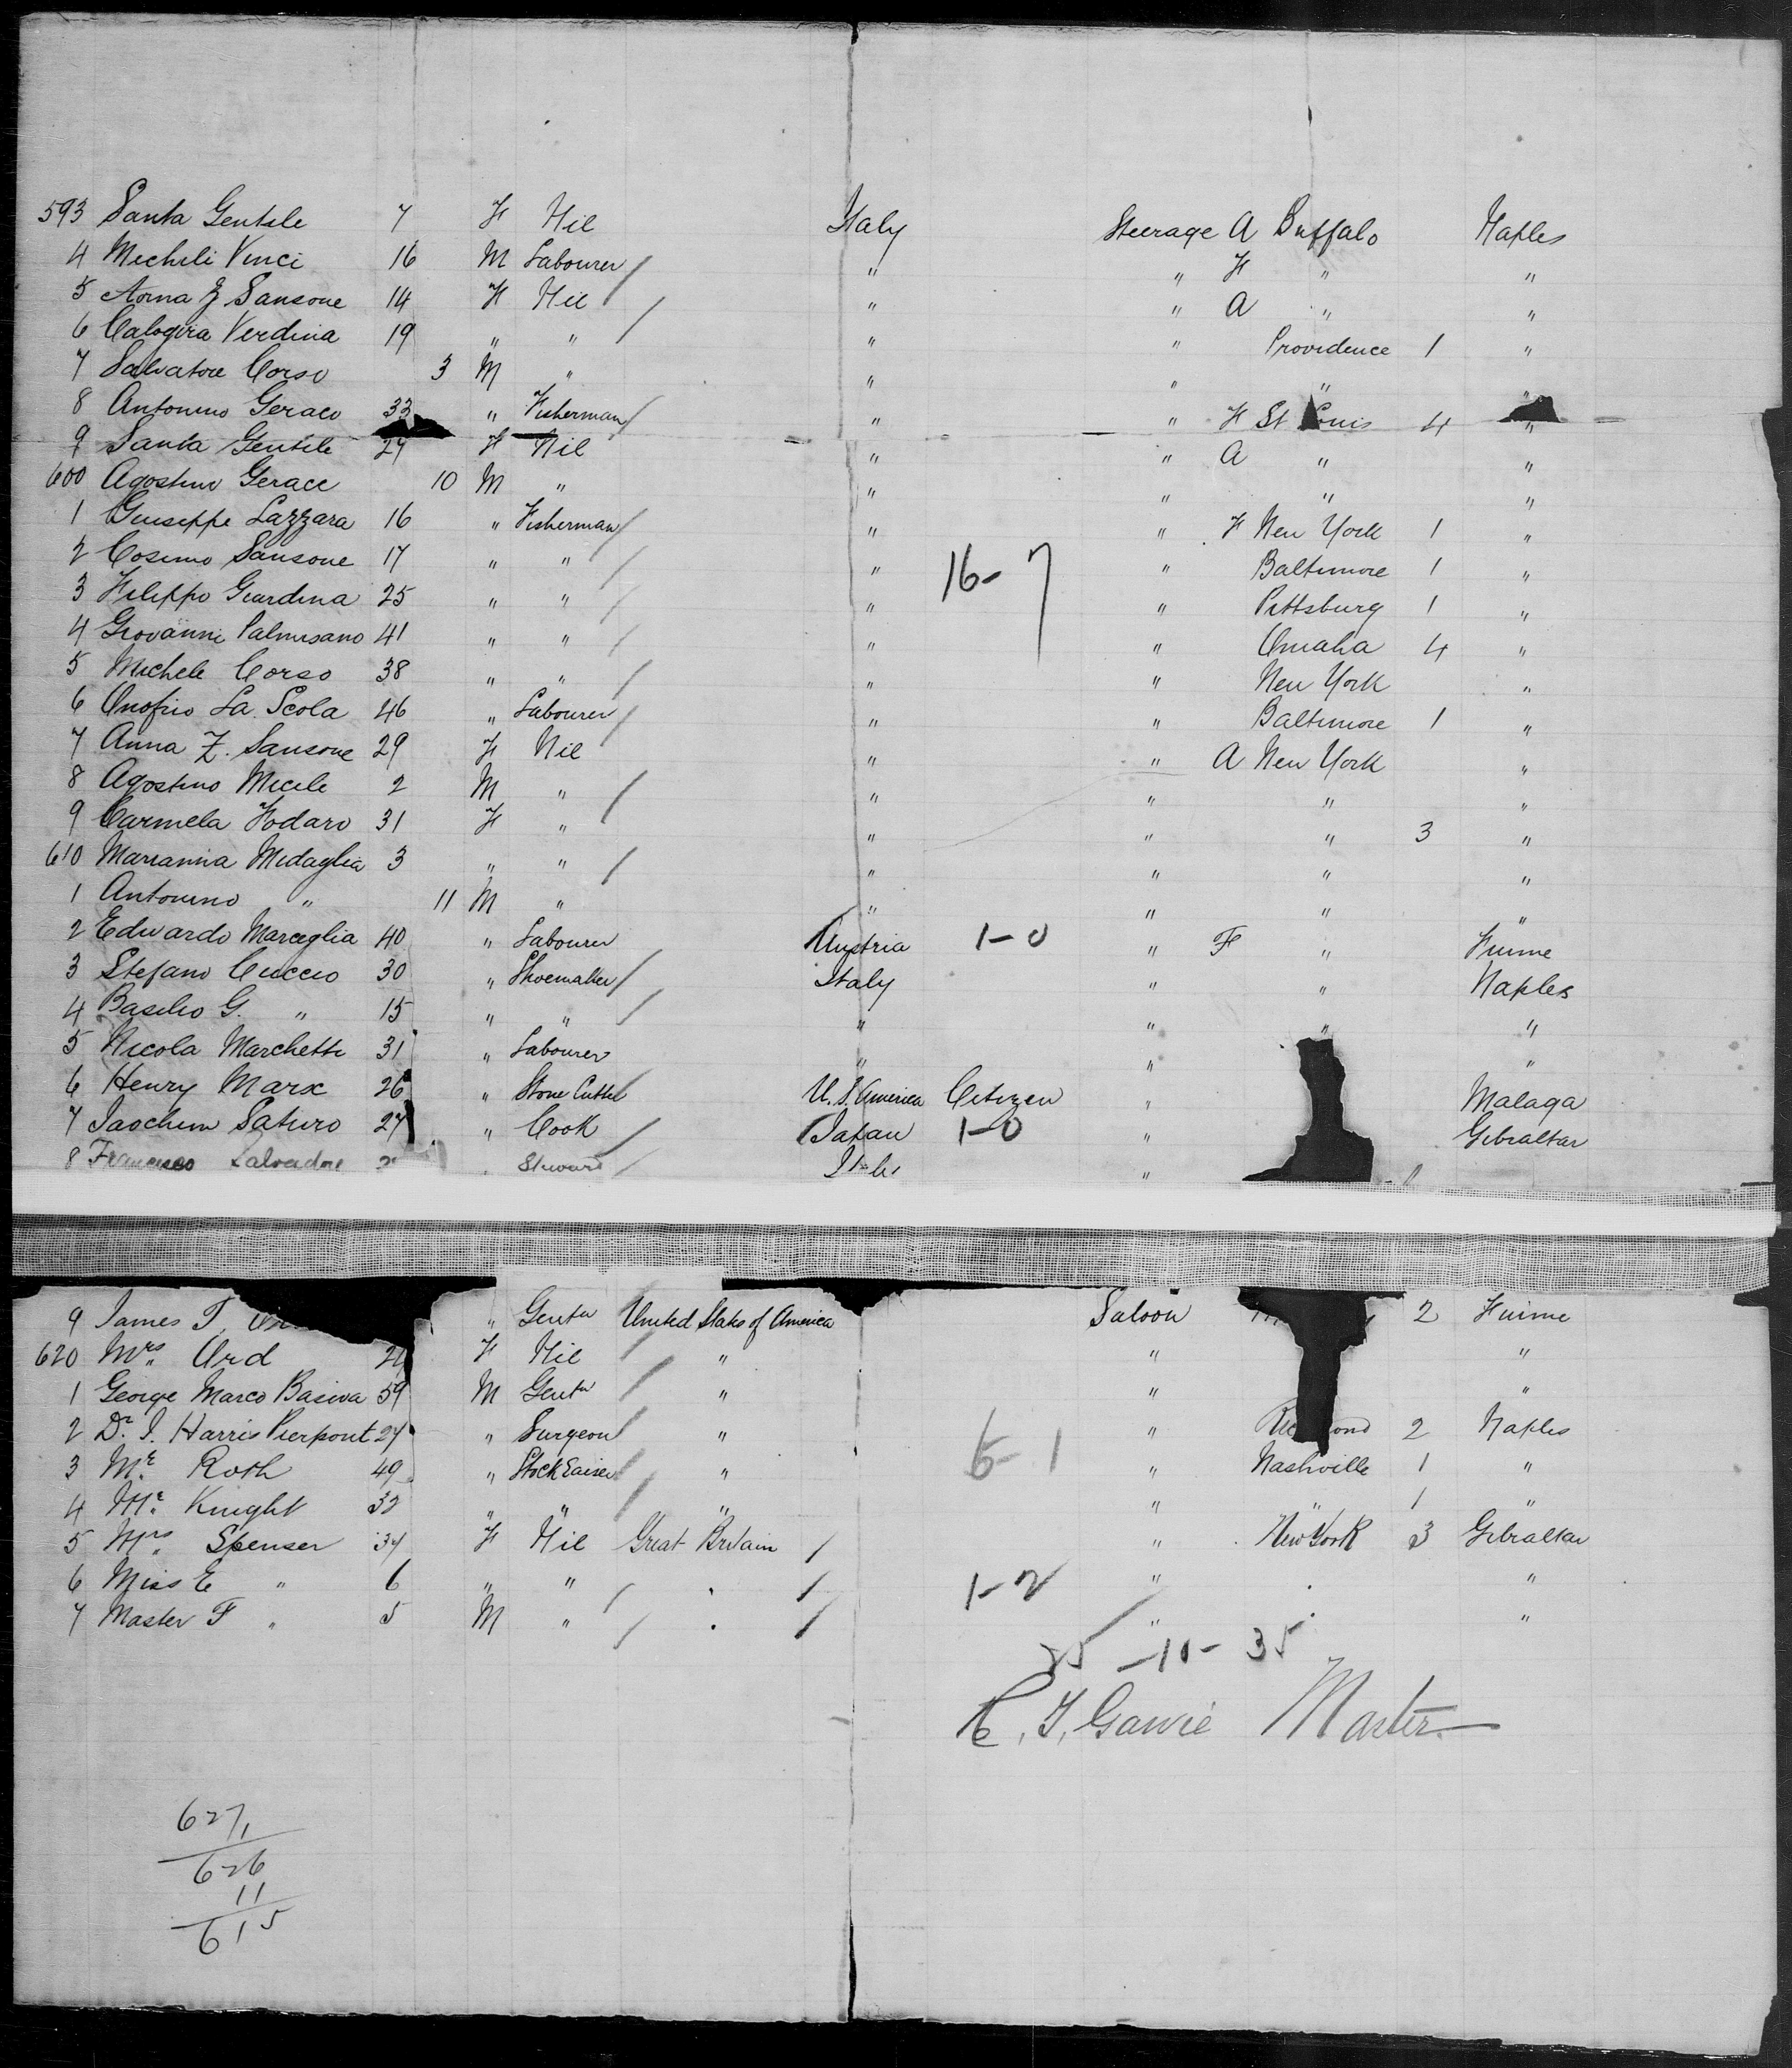 593 Santa Gentile 7 F Nil Italy Steerage A Buffalo Naples
4 Micheli Vinci 16 M Labourer " " F " "
5 Anna Z Sansone 14 F Nil " " A " "
6 Calogira Verdina 19 " " " " Providence 1 "
7 Salvatore Corso 3 M " " " " "
8 Antonino Geraco 33 " Fisherman " " F St Louis 4 "
9 Santa Gentile 27 F Nil " " A " "
600 Agostino Gerace 10 M " " " " "
1 Giuseppe Lazzara 16 " Fisherman " " F New York 1 "
2 Cosimo Sansone 17 " " " 16-7 " Baltimore 1 "
3 Filippo Giardina 25 " " " " Pittsburg 1 "
4 Giovanni Palmisano 41 " " " " Omaha 4 "
5 Michele Corso 38 " " " " New York "
6 Onofrio La Scola 46 " Labourer " " Baltimore 1 "
7 Anna Z. Sansone 29 F Nil " " A New York "
8 Agostino Micele 2 M " " " " "
9 Carmela Fodaro 31 F " " " " 3 "
610 Marianna Midaglia 3 " " " " " "
1 Antonino " 11 M " " " " "
2 Edwardo Marceglia 40 " Labourer Austria 1-0 " F " Fiume
3 Stefano Cuccio 30 " Shoemaker Italy " " Naples
4 Basilio G. " 15 " " " " " "
5 Nicola Marchetti 31 " Labourer " " "
6 Henry Marx 26 " Stone Cutter U.S. America Citizen " Malaga
7 Jaochim Saturo 27 " Cook Japan 1-0 " Gibraltar
8 Francisco Salvadore " Steward "
9 James T. " Gentn United States of America Saloon 2 Fiume
620 Mrs Ord F Nil " " "
1 George Marco Basiva 59 M Gentn " " "
2 Dr. J. Harris Pierpont 27 " Surgeon " " 2 Naples
3 Mr. Roth 49 " Stock Raiser " 6-1 " Nashville 1 "
4 Mr. Knight 32 " " " " " 1 "
5 Mrs Spenser 34 F Nil Great Britain " New York 3 Gibraltar
6 Miss E " 6 " " 1-2 " "
7 Master F " 5 M " " "
25-10-35
C. F. Gavie Master
627
1
626
11
615